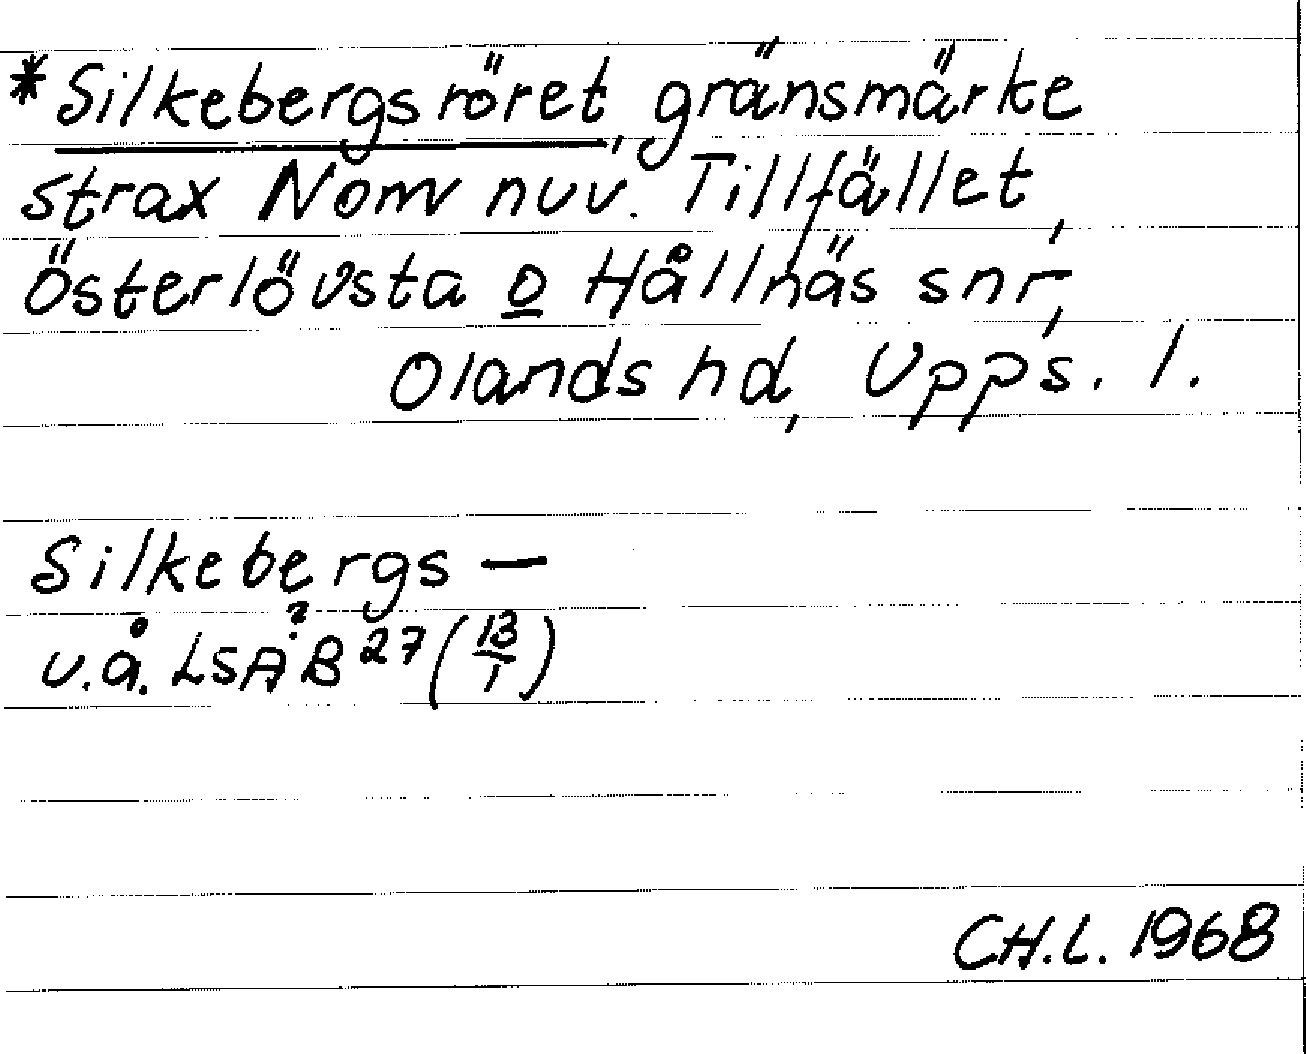 *Silkebergsröret, gränsmärke
strax Nom nuv. Tillfället,
Österlövsta o Hållnäs snr,
Olands hd, Upps. l.
Silkebergs —
u.å. LSA? B 27 (13/1)
CH.L. 1968